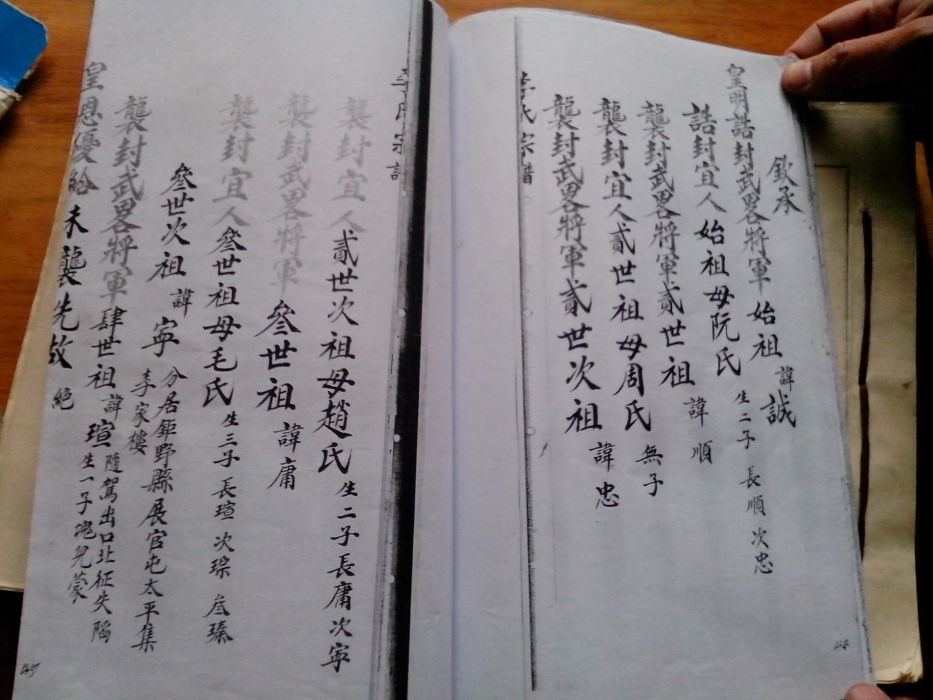 欽承
皇明誥封武畧將軍始祖諱誠
誥封宜人始祖母阮氏生二子長順次忠
襲封武畧將軍貳世祖諱順
襲封宜人貳世祖母周氏無子
襲封武畧將軍貳世次祖諱忠
李氏宗譜
李氏宗譜
襲封宜人貳世次祖母趙氏生二子長庸次寜
襲封武畧將軍叄世祖諱庸
襲封宜人叄世祖母毛氏生三子長瑄次琮叁瑧
叄世次祖諱寜分居鉅野縣展官屯太平集
李家樓
襲封武畧將軍肆世祖諱瑄隨駕出口北征失陷
生一子兒蒙
皇恩優給未襲先故絕